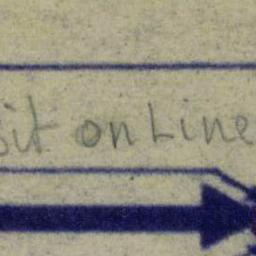 sit on Line